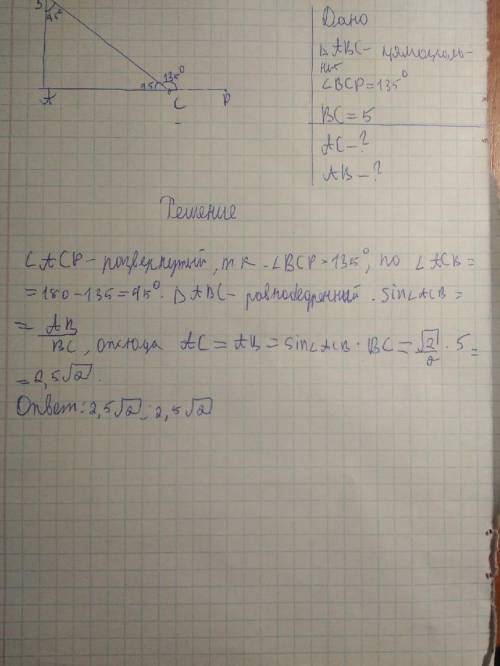 B
45°
135°
45°
A
C
P
Дано
△ABC - прямоуголь-
ный
∠BCP=135°
BC=5
AC-?
AB-?
Решение
∠ACP-развернутый, т к ∠BCP=135°, то ∠ACB=
=180-135=45°. △ABC- равнобедренный. sin∠ACB=
= AB/BC, отсюда AC=AB=sin∠ACB·BC=√2/2·5=
=2,5√2.
Ответ: 2,5√2; 2,5√2